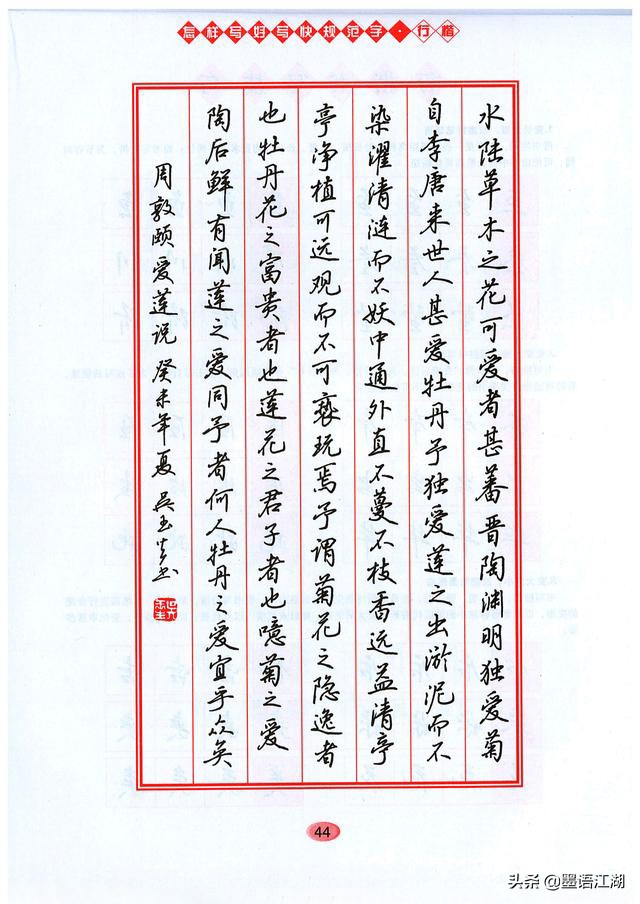 怎样写好写快规范字·行楷
水陆草木之花可爱者甚蕃晋陶渊明独爱菊
自李唐来世人甚爱牡丹予独爱莲之出淤泥而不
染濯清涟而不妖中通外直不蔓不枝香远益清亭
亭净植可远观而不可亵玩焉予谓菊花之隐逸者
也牡丹花之富贵者也莲花之君子者也噫菊之爱
陶后鲜有闻莲之爱同予者何人牡丹之爱宜乎众矣
周敦颐爱莲说 癸未年夏 吴玉生书
44
头条 @墨语江湖